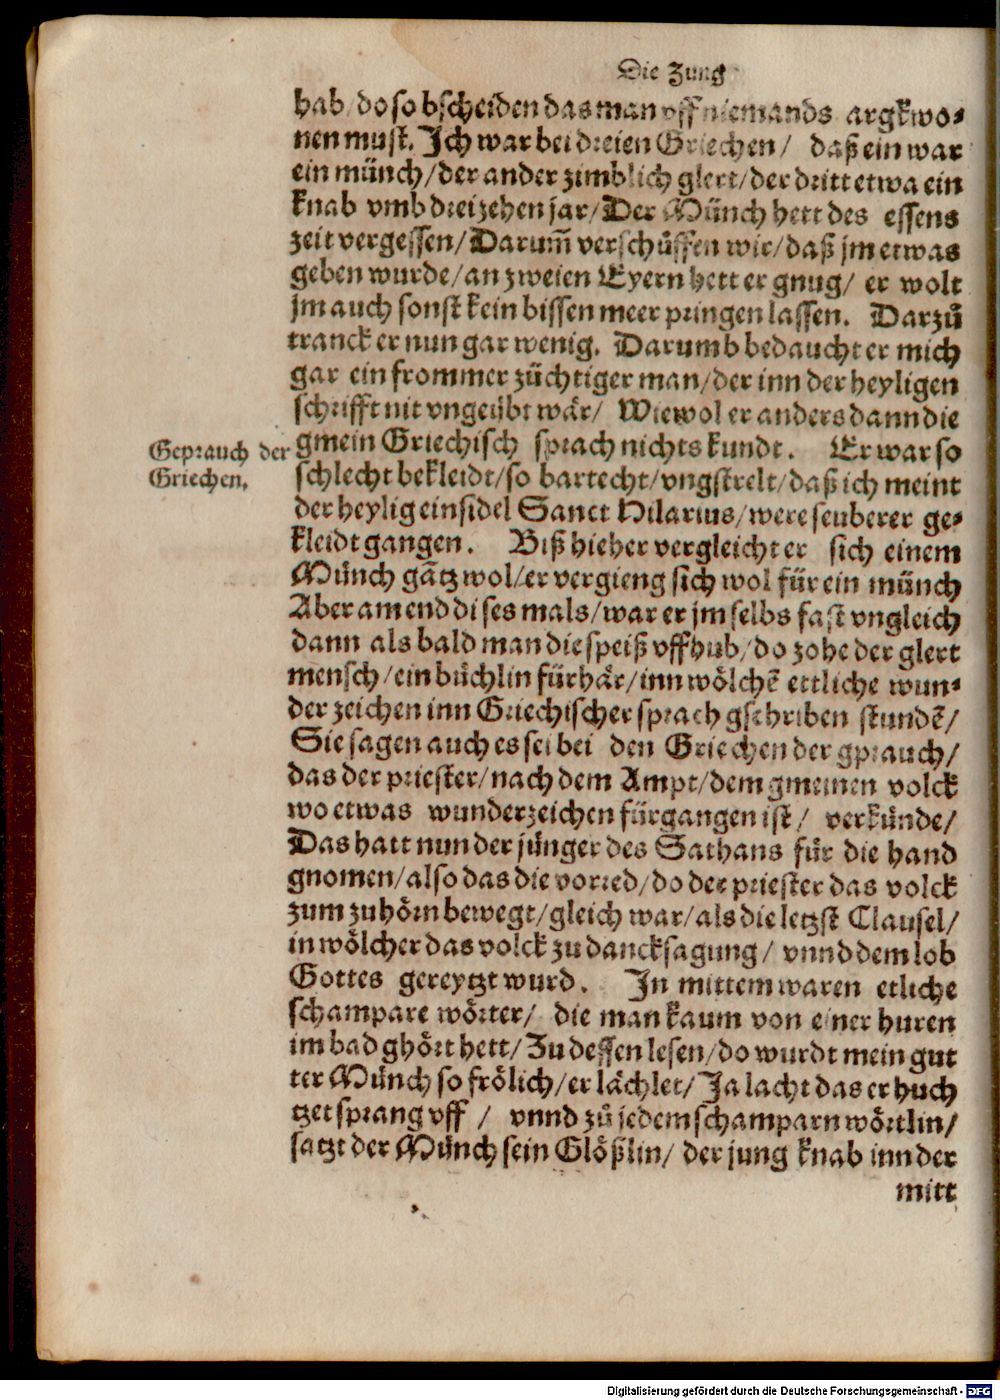 Die Zung
hab/ do so bscheiden das man vff niemands argkwo⸗
nen must. Ich war bei dreien Griechen/ daß ein war
ein münch/ der ander zimblich glert/ der dritt etwa ein
knab vmb dreizehen jar/ Der Münch hett des essens
zeit vergessen/ Darum̄ verschůffen wir/ daß jm etwas
geben wurde/ an zweien Eyern hett er gnug/ er wolt
jm auch sonst kein bissen meer pringen lassen. Darzů
tranck er nun gar wenig. Darumb bedaucht er mich
gar ein frommer züchtiger man/ der inn der heyligen
schrifft nit vngeübt wår/ Wiewol er anders dann die
gmein Griechisch sprach nichts kundt. Er war so
Geprauch der
Griechen.
schlecht bekleidt/ so bartecht/ vngstrelt/ daß ich meint
der heylig einsidel Sanct Hilarius/ were seuberer ge⸗
kleidt gangen. Biß hieher vergleicht er sich einem
Münch gātz wol/ er vergieng sich wol für ein münch
Aber am end dises mals/ war er jm selbs fast vngleich
dann als bald man die speiß vffhub/ do zohe der glert
mensch/ ein büchlin fürhår/ inn wőlchē ettliche wun⸗
der zeichen inn Griechischer sprach gschriben stundē/
Sie sagen auch es sei bei den Griechen der gprauch/
das der priester/ nach dem Ampt/ dem gmeinen volck
wo etwas wunderzeichen fürgangen ist/ verkünde/
Das hatt nun der jünger des Sathans für die hand
gnomen/ also das die vorred/ do der priester das volck
zum zuhőrn bewegt/ gleich war/ als die letzst Clausel/
in wőlcher das volck zu dancksagung/ vnnd dem lob
Gottes gereytzt wurd. In mittem waren etliche
schampare wőrter/ die man kaum von einer huren
im bad ghőrt hett/ Zu dessen lesen/ do wurdt mein gut
ter Münch so frőlich/ er låchlet/ Ja lacht das er huch
tzet sprang vff/ vnnd zů jedem schamparn wőrtlin/
satzt der Münch sein Glőßlin/ der jung knab inn der
mitt
Digitalisierung gefördert durch die Deutsche Forschungsgemeinschaft - DFG